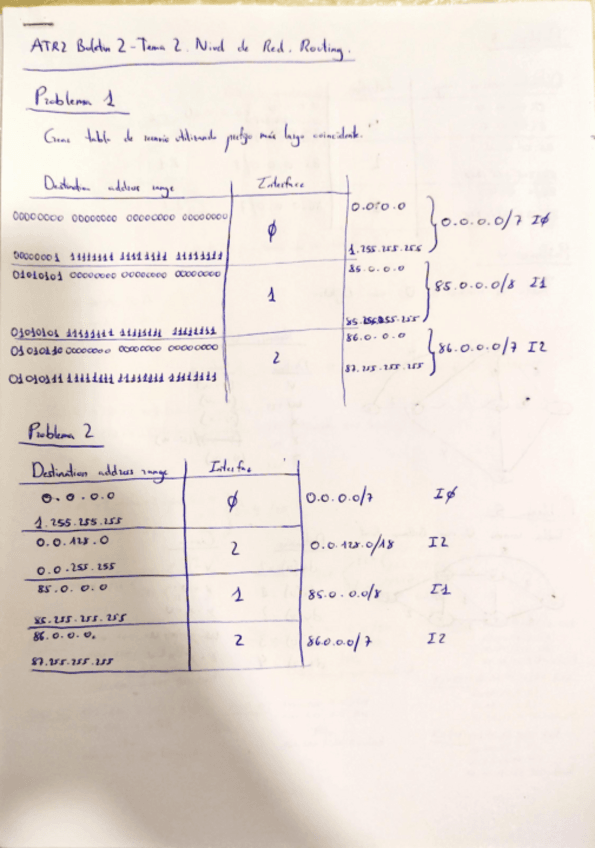 ATR2 Boletín 2 - Tema 2. Nivel de Red. Routing.
Problema 1
tabla de utilizando prefijo más largo coincidente.
Destination address range Interface
00000000 00000000 00000000 00000000 0 0.0.0.0 0.0.0.0/7 IØ
0000001 11111111 11111111 11111111 1.255.255.255
01010101 00000000 00000000 00000000 1 85.0.0.0 85.0.0.0/8 I1
01010101 11111111 11111111 11111111 85.255.255.255
01010110 00000000 00000000 00000000 2 86.0.0.0 86.0.0.0/7 I2
01010111 11111111 11111111 11111111 87.255.255.255
Problema 2
Destination address range Interfac
0.0.0.0 Ø 0.0.0.0/7 IØ
1.255.255.255
0.0.128.0 2 0.0.128.0/18 I2
0.0.255.255
85.0.0.0 1 85.0.0.0/8 I1
85.255.255.255
86.0.0.0. 2 86.0.0.0/7 I2
87.255.255.255